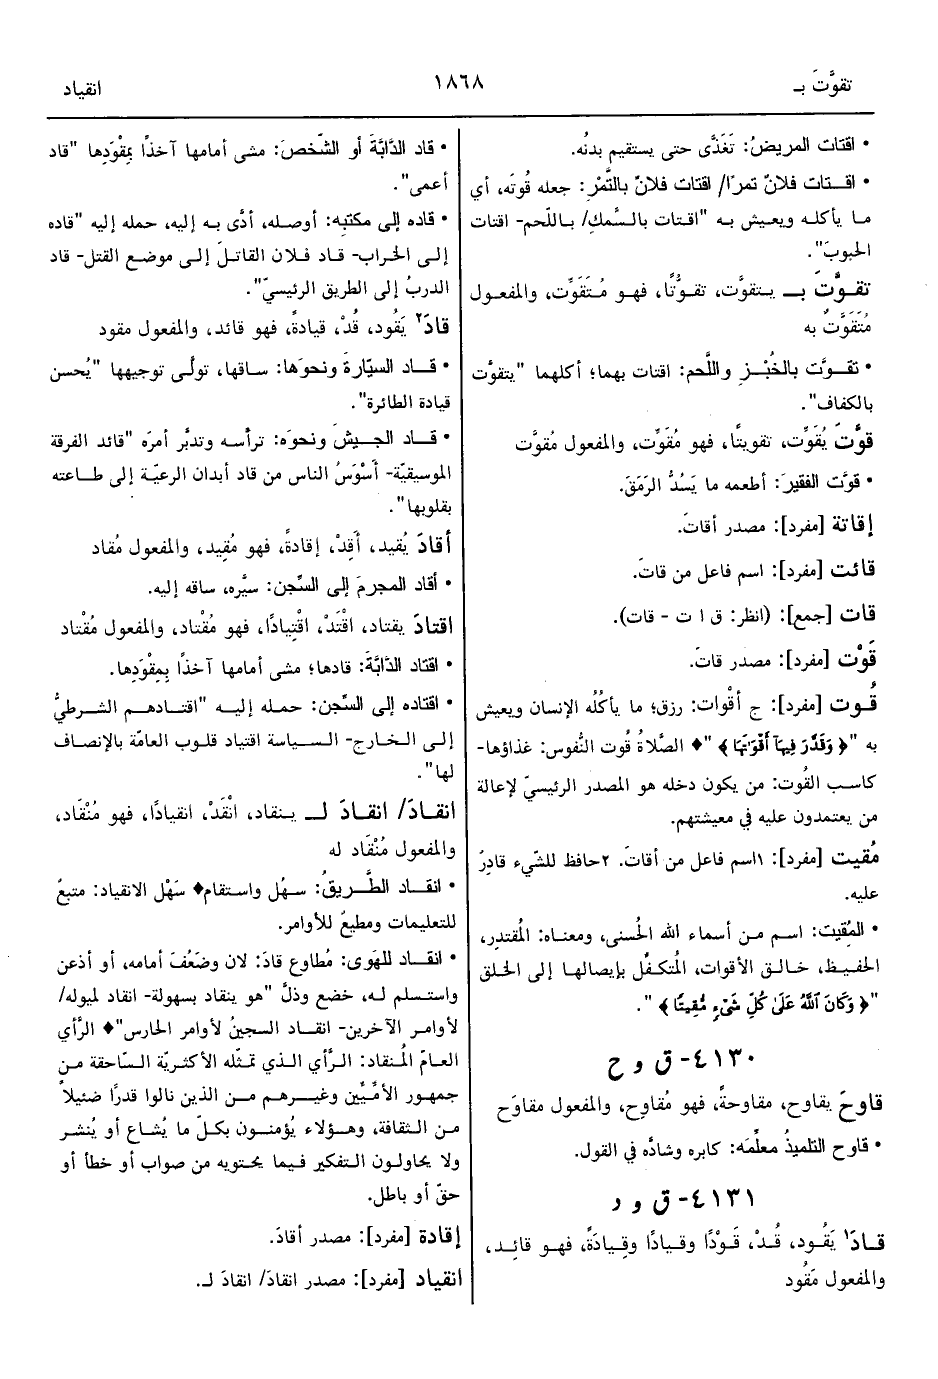 تقوَّتَ بـ
١٨٦٨
انقياد
• اقتات المريضُ: تَغَذَّى حتى يستقيم بدنُه.
• اقتات فلانٌ تمرًا/ اقتات فلانٌ بالتَّمْرِ: جعله قُوتَه، أي
ما يأكله ويعيش به "اقتات بالسَّمك/ باللّحم- اقتات
الحبوبَ".
تقوَّتَ بـ يتقوَّت، تقوُّتًا، فهو مُتَقَوِّت، والمفعول
مُتَقَوَّتٌ به
• تقوَّت بالخُبْزِ واللَّحم: اقتات بهما؛ أكلهما "يتقوَّت
بالكفاف".
قوَّتَ يُقَوِّت، تقويتًا، فهو مُقَوِّت، والمفعول مُقوَّت
• قوَّت الفقيرَ: أطعمه ما يَسُدُّ الرَمَقَ.
إقاتة [مفرد]: مصدر أقاتَ.
قائت [مفرد]: اسم فاعل من قاتَ.
قات [جمع]: (انظر: ق ا ت - قات).
قَوْت [مفرد]: مصدر قاتَ.
قُوت [مفرد]: ج أقْوات: رزق؛ ما يأكُلُه الإنسان ويعيش
به "﴿وَقَدَّرَ فِيهَآ أَقْوَٰتَهَا﴾ "♦ الصَّلاةُ قُوت النُّفوس: غذاؤها-
كاسب القُوت: من يكون دخله هو المصدر الرئيسيّ لإعالة
من يعتمدون عليه في معيشتهم.
مُقيت [مفرد]: ١اسم فاعل من أقاتَ. ٢حافظ للشّيء قادِرٌ
عليه.
• المُقيت: اسم من أسماء الله الحُسنى، ومعناه: المُقتدِر،
الحفيظ، خالق الأقوات، المُتكفِّل بإيصالها إلى الخلق
"﴿وَكَانَ ٱللَّهُ عَلَىٰ كُلِّ شَىْءٍ مُّقِيتًا﴾ ".
٤١٣٠- ق و ح
قاوحَ يقاوح، مقاوحةً، فهو مُقاوِح، والمفعول مقاوَح
• قاوح التلميذُ معلِّمَه: كابره وشادَّه في القول.
٤١٣١- ق و د
قادَ١ يَقُود، قُدْ، قَوْدًا وقيادًا وقِيادَةً، فهو قائِد،
والمفعول مَقُود
• قاد الدَّابَّةَ أو الشّخصَ: مشى أمامها آخذًا بِمِقْوَدِها "قاد
أعمى".
• قاده إلى مكتبِه: أوصله، أدَّى به إليه، حمله إليه "قاده
إلى الخراب- قاد فلان القاتلَ إلى موضع القتل- قاد
الدربُ إلى الطريق الرئيسيّ".
قادَ٢ يَقُود، قُدْ، قيادةً، فهو قائد، والمفعول مقود
• قاد السيّارةَ ونحوَها: ساقها، تولَّى توجيهها "يُحسن
قيادة الطائرة".
• قاد الجيشَ ونحوَه: ترأسه وتدبَّر أمرَه "قائد الفرقة
الموسيقيّة- أَسْوَسُ الناس من قاد أبدان الرعيّة إلى طاعته
بقلوبها".
أقادَ يُقيد، أَقِدْ، إقادةً، فهو مُقِيد، والمفعول مُقاد
• أقاد المجرمَ إلى السِّجن: سيَّره، ساقه إليه.
اقتادَ يقتاد، اقْتَدْ، اقْتِيادًا، فهو مُقْتاد، والمفعول مُقْتاد
• اقتاد الدَّابَّةَ: قادها؛ مشى أمامها آخذًا بِمِقْوَدِها.
• اقتاده إلى السِّجن: حمله إليه "اقتادهم الشرطيُّ
إلى الخارج- السياسة اقتياد قلوب العامّة بالإنصاف
لها".
انقادَ/ انقادَ لـ ينقاد، انْقَدْ، انقيادًا، فهو مُنْقَاد،
والمفعول مُنْقَاد له
• انقاد الطَّريقُ: سهُل واستقام♦ سَهْل الانقياد: متبعٌ
للتعليمات ومطيعٌ للأوامر.
• انقاد للهَوى: مُطاوع قادَ: لان وضَعُفَ أمامه، أو أذعن
واستسلم له، خضع وذلَّ "هو ينقاد بسهولة- انقاد لميوله/
لأوامر الآخرين- انقاد السجينُ لأوامر الحارس"♦ الرَّأي
العامّ المُنقاد: الرَّأي الذي تمثّله الأكثريّة السّاحقة من
جمهور الأمِّيِّين وغيرهم من الذين نالوا قدرًا ضئيلاً
من الثقافة، وهؤلاء يُؤمنون بكلّ ما يُشاع أو يُنشر
ولا يحاولون التفكير فيما يحتويه من صواب أو خطأ أو
حقّ أو باطل.
إقادة [مفرد]: مصدر أقادَ.
انقياد [مفرد]: مصدر انقادَ/ انقادَ لـ.